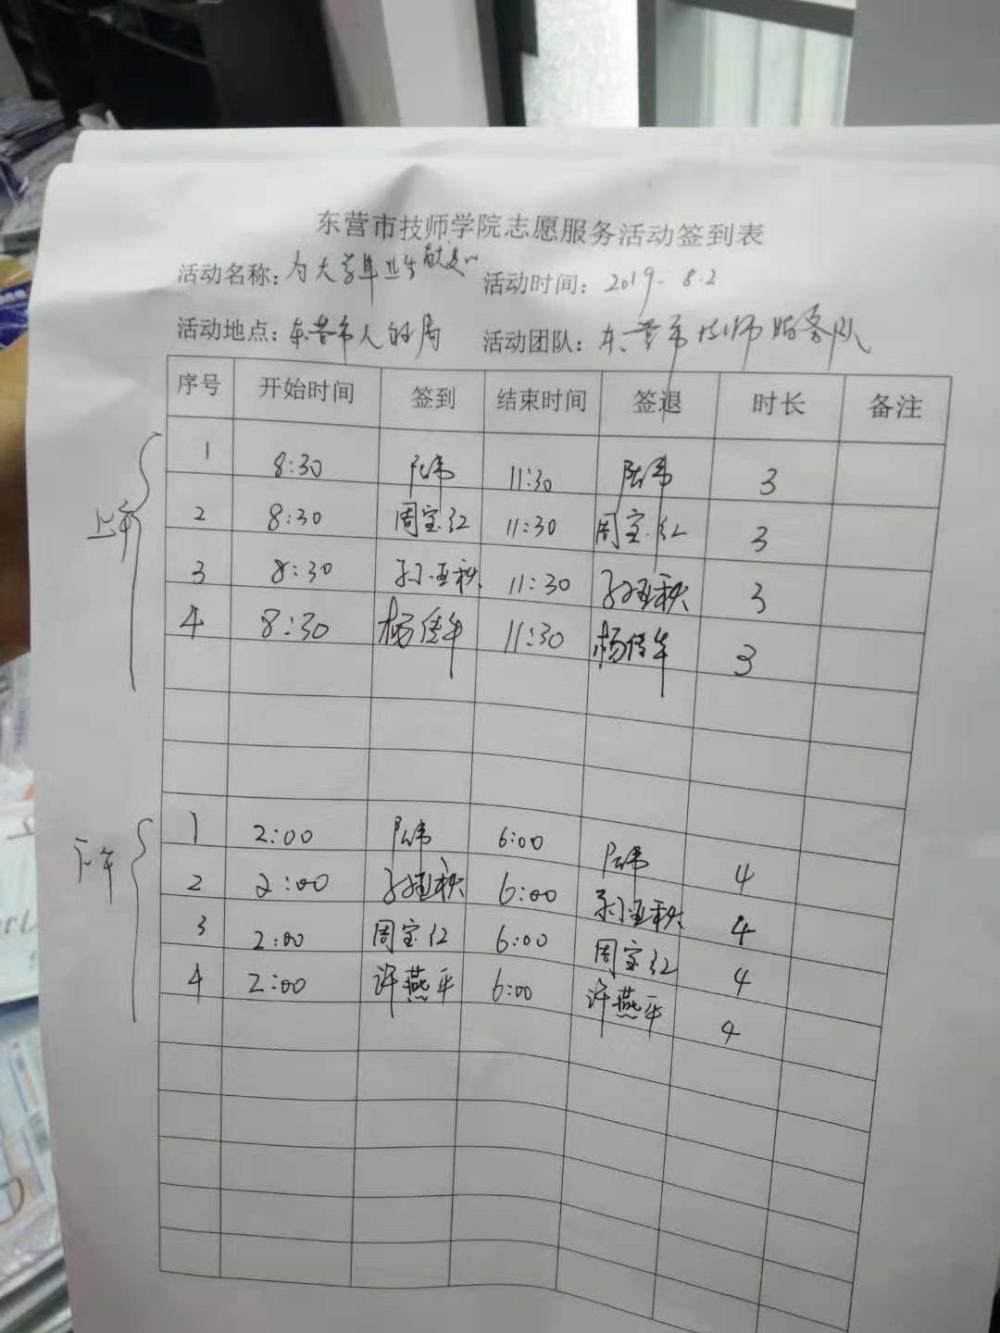 东营市技师学院志愿服务活动签到表
活动名称：为大学毕业生献爱心 活动时间：2019.8.2
活动地点：东营市人社局 活动团队：东营市技师 服务队
序号 开始时间 签到 结束时间 签退 时长 备注
上午
1 8:30 陆伟 11:30 陆伟 3
2 8:30 周宝红 11:30 周宝红 3
3 8:30 孙亚秋 11:30 孙亚秋 3
4 8:30 杨佳年 11:30 杨佳年 3
下午
1 2:00 陆伟 6:00 陆伟 4
2 2:00 孙亚秋 6:00 孙亚秋 4
3 2:00 周宝红 6:00 周宝红 4
4 2:00 许燕平 6:00 许燕平 4